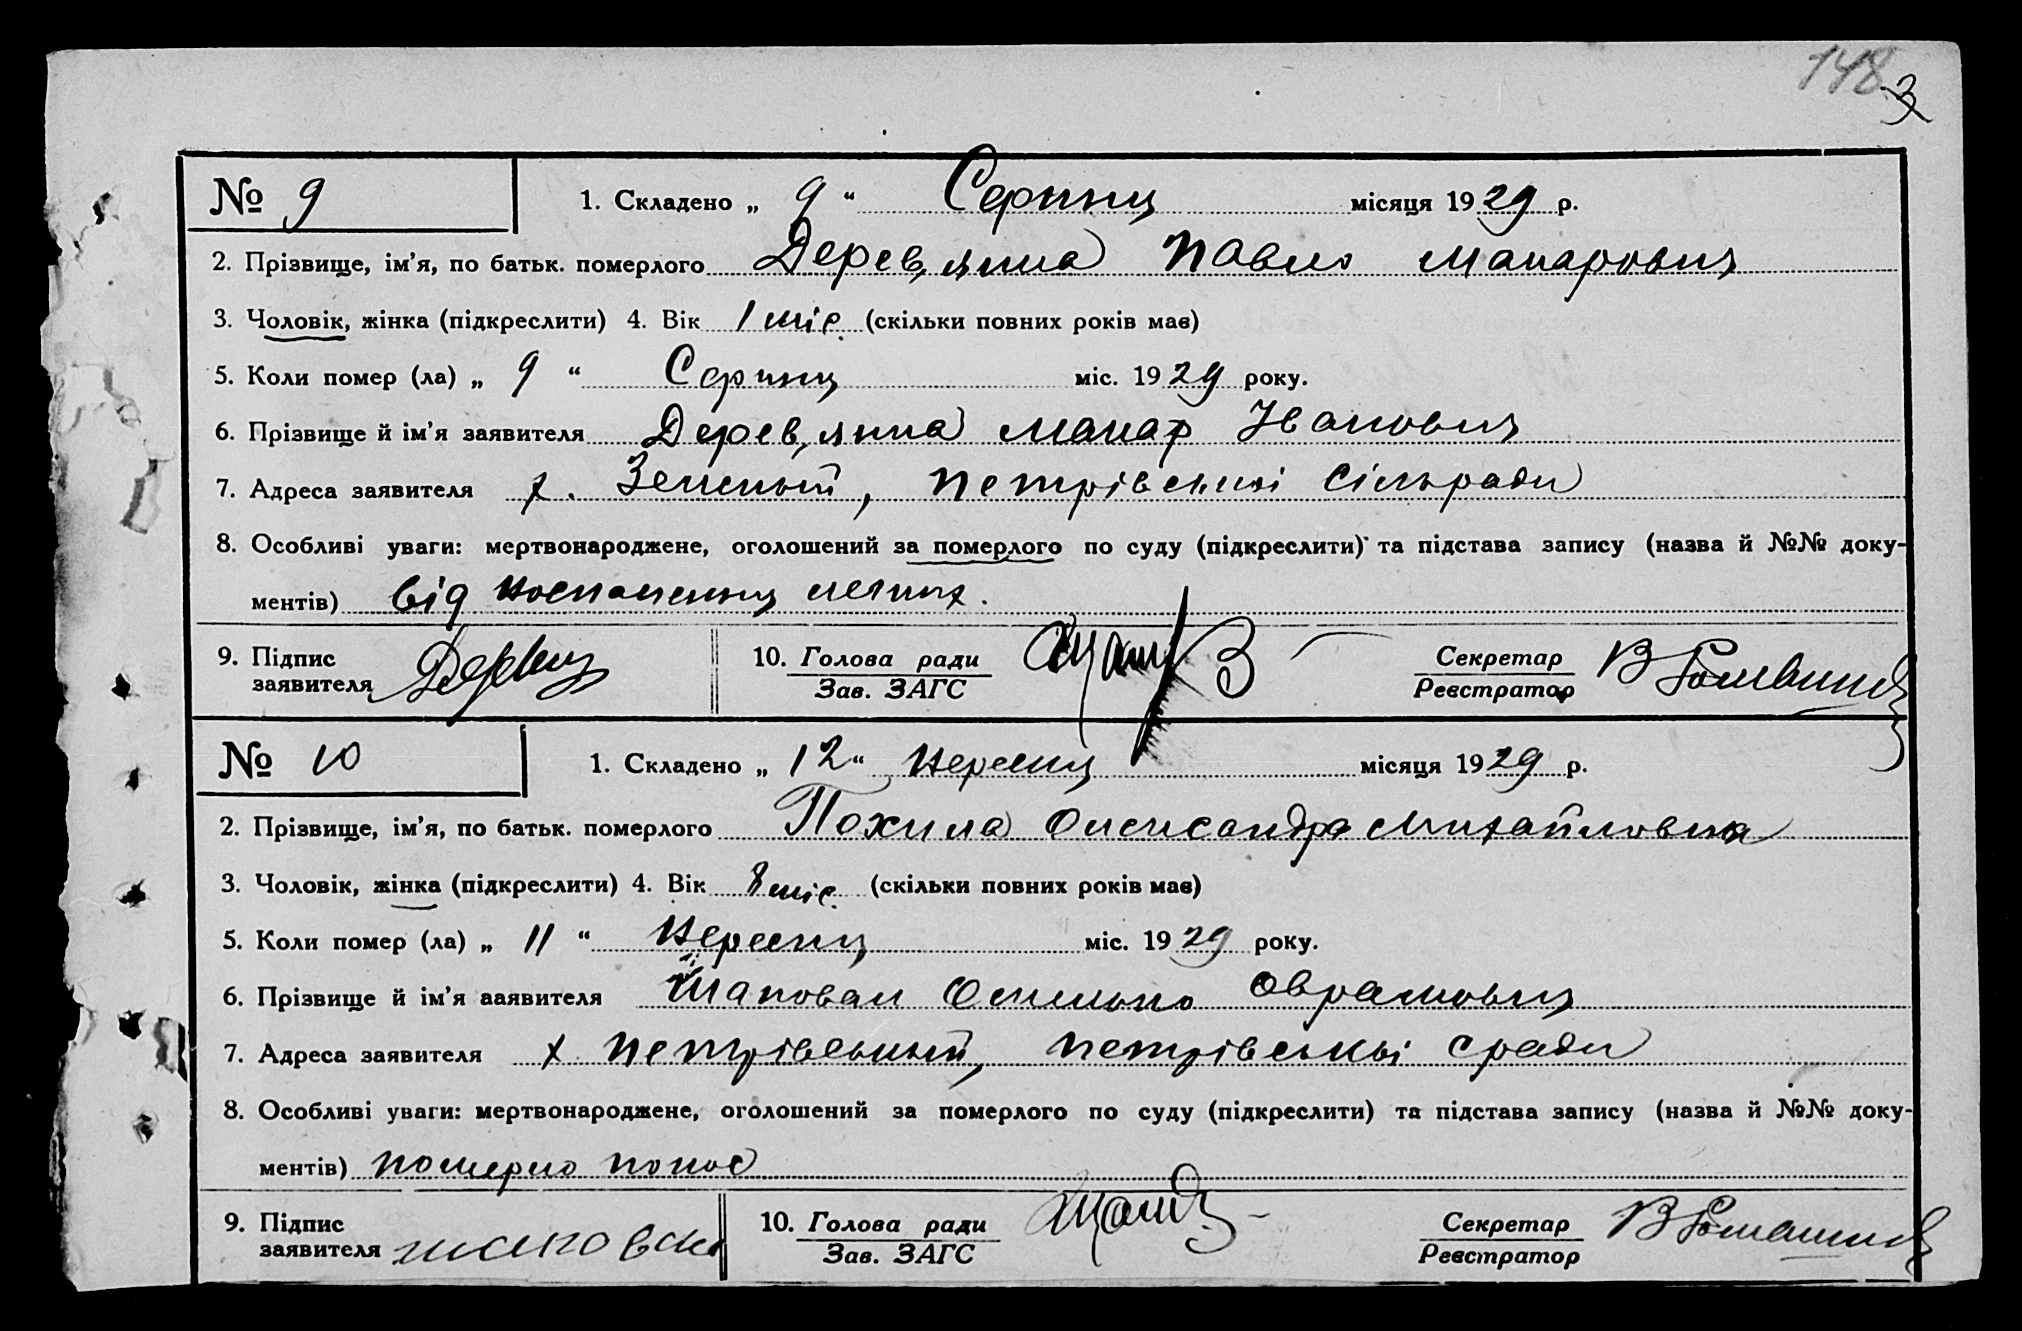 148
3
№ 9 1. Складено „ 9 “ Серпня місяця 1929 р.
2. Прізвище, ім’я, по батьк. померлого Дерев,янка Павло Макарович
3. Чоловік, жінка (підкреслити) 4. Вік 1 міс. (скільки повних років має)
5. Коли помер (ла) „ 9 “ Серпня міс. 1929 року.
6. Прізвище й ім’я заявителя Дерев,янка Макар Іванович
7. Адреса заявителя х. Земський, Петрівської сільради
8. Особливі уваги: мертвонароджене, оголошений за померлого по суду (підкреслити) та підстава запису (назва й №№ доку-
ментів) від воспаления легких.
9. Підпис 10. Голова ради Секретар
заявителя Зав. ЗАГС Реєстратор
№ 10 1. Складено „ 12 “ Вересня місяця 1929 р.
2. Прізвище, ім’я, по батьк. померлого Похила Олександра Михайловна
3. Чоловік, жінка (підкреслити) 4. Вік 8 міс. (скільки повних років має)
5. Коли помер (ла) „ 11 “ Вересня міс. 1929 року.
6. Прізвище й ім’я ааявителя Шаповал Омелько Оврамович
7. Адреса заявителя х Петрівський, Петрівськьі сради
8. Особливі уваги: мертвонароджене, оголошений за померлого по суду (підкреслити) та підстава запису (назва й №№ доку-
ментів) померло понос
9. Підпис 10. Голова ради Секретар
заявителя Зав. ЗАГС Реєстратор